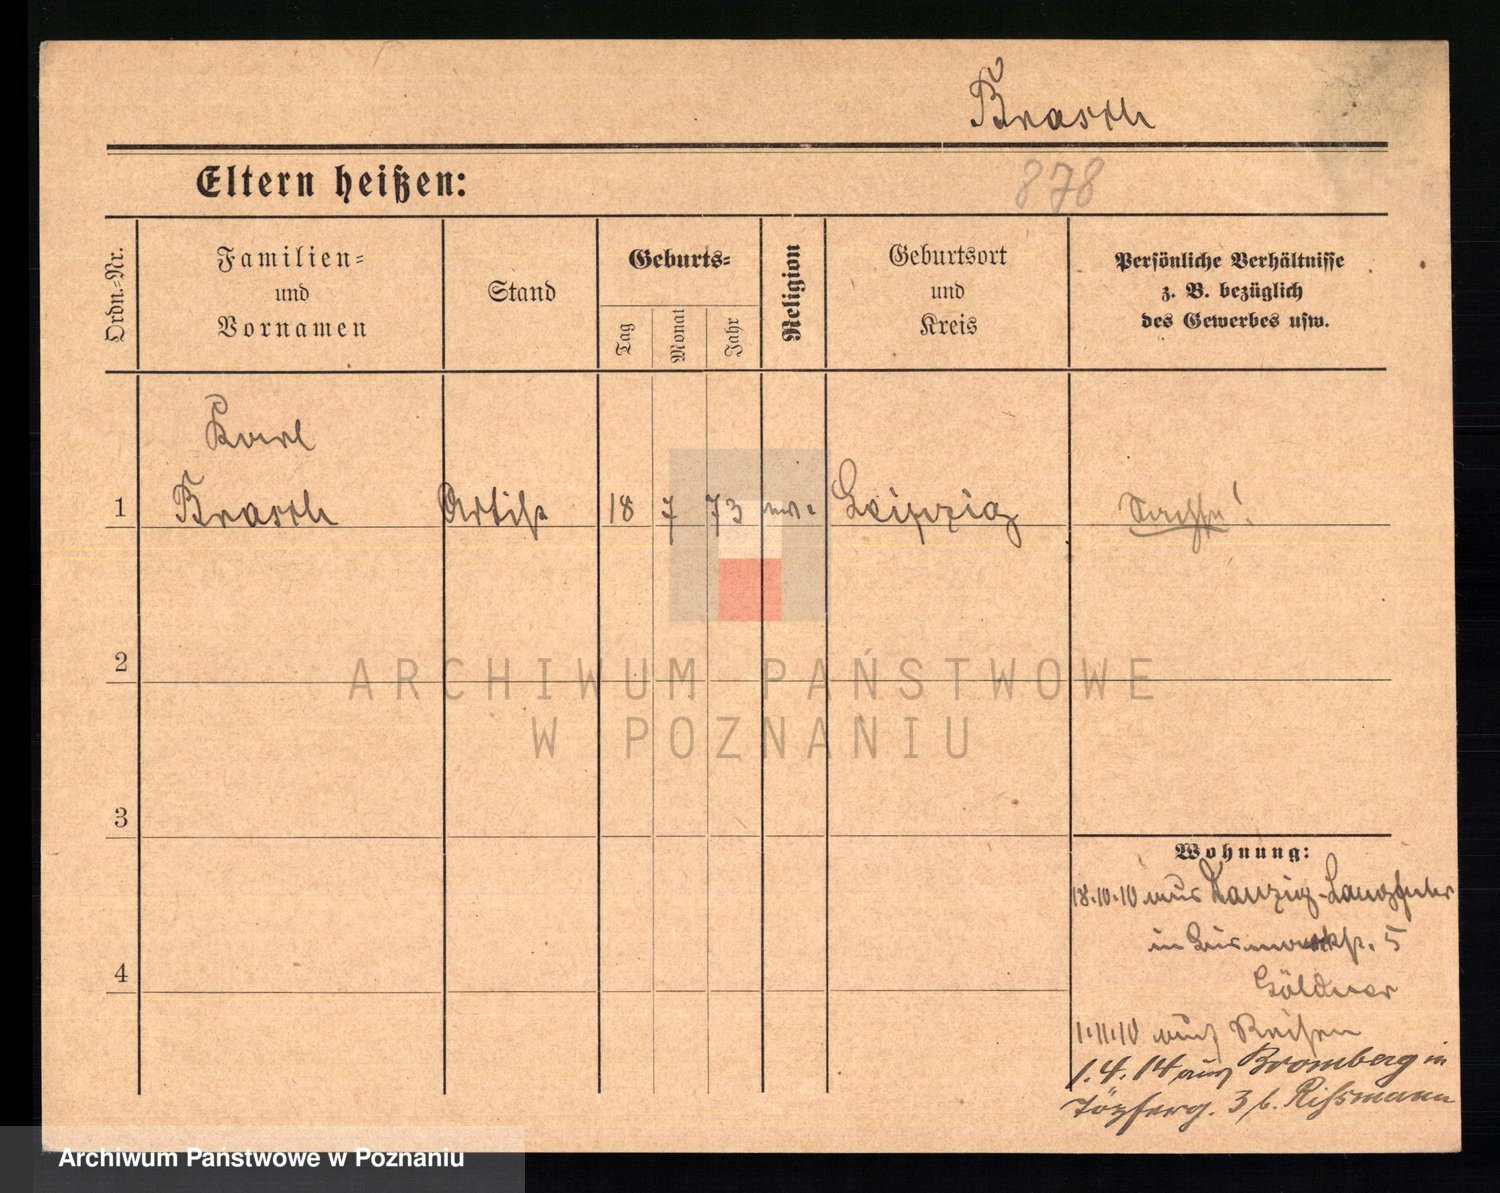 Brasch
Eltern heißen:
878
Ordn.-Nr.
Familien-
und
Vornamen
Stand
Geburts-
Tag
Monat
Jahr
Religion
Geburtsort
und
Kreis
Persönliche Verhältnisse
z. B. bezüglich
des Gewerbes usw.
Karl
1 Brasch Artist 18 7 73 Leipzig Sachse!
2
ARCHIWUM PAŃSTWOWE
W POZNANIU
3
Wohnung:
18.10.10 aus Danzig-Langfuhr
4 in Bismarckstr. 5
Göldner
1.11.10 auf Reisen
1.4.14 aus Bromberg in
Töpferg. 3 b. Rißmann
Archiwum Państwowe w Poznaniu